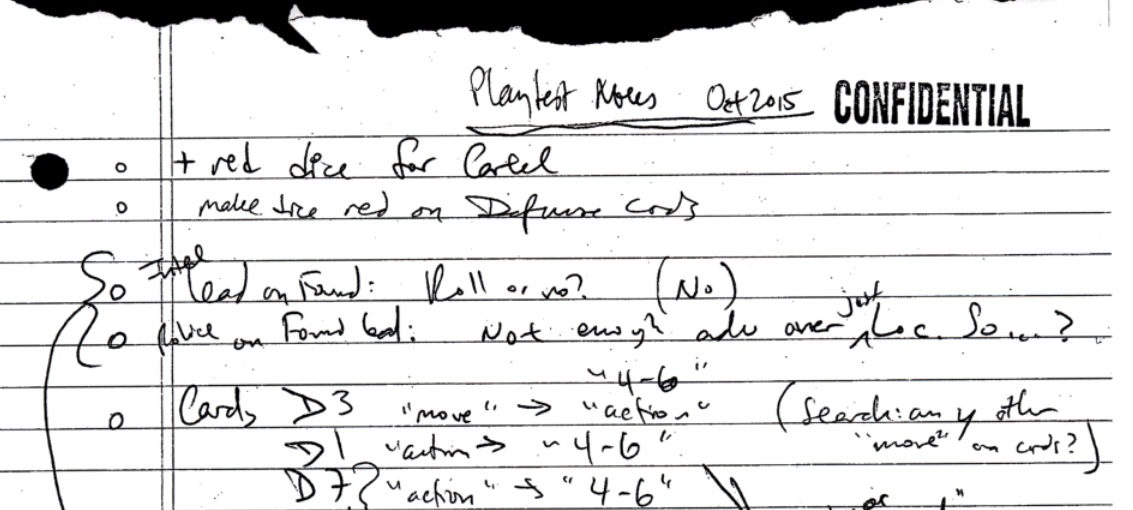 Playtest Notes Oct 2015 CONFIDENTIAL
+ red dice for Cartel
make dice red on Defense cards
Intel
lead on Found: Roll or no? (No)
Police on Found lead: Not enough adv over just Loc. So...?
"4-6"
Cards D3 "move" → "action" (Search: any other
D1 "action → "4-6" "move" on cards?)
D7? "action" → "4-6"
or